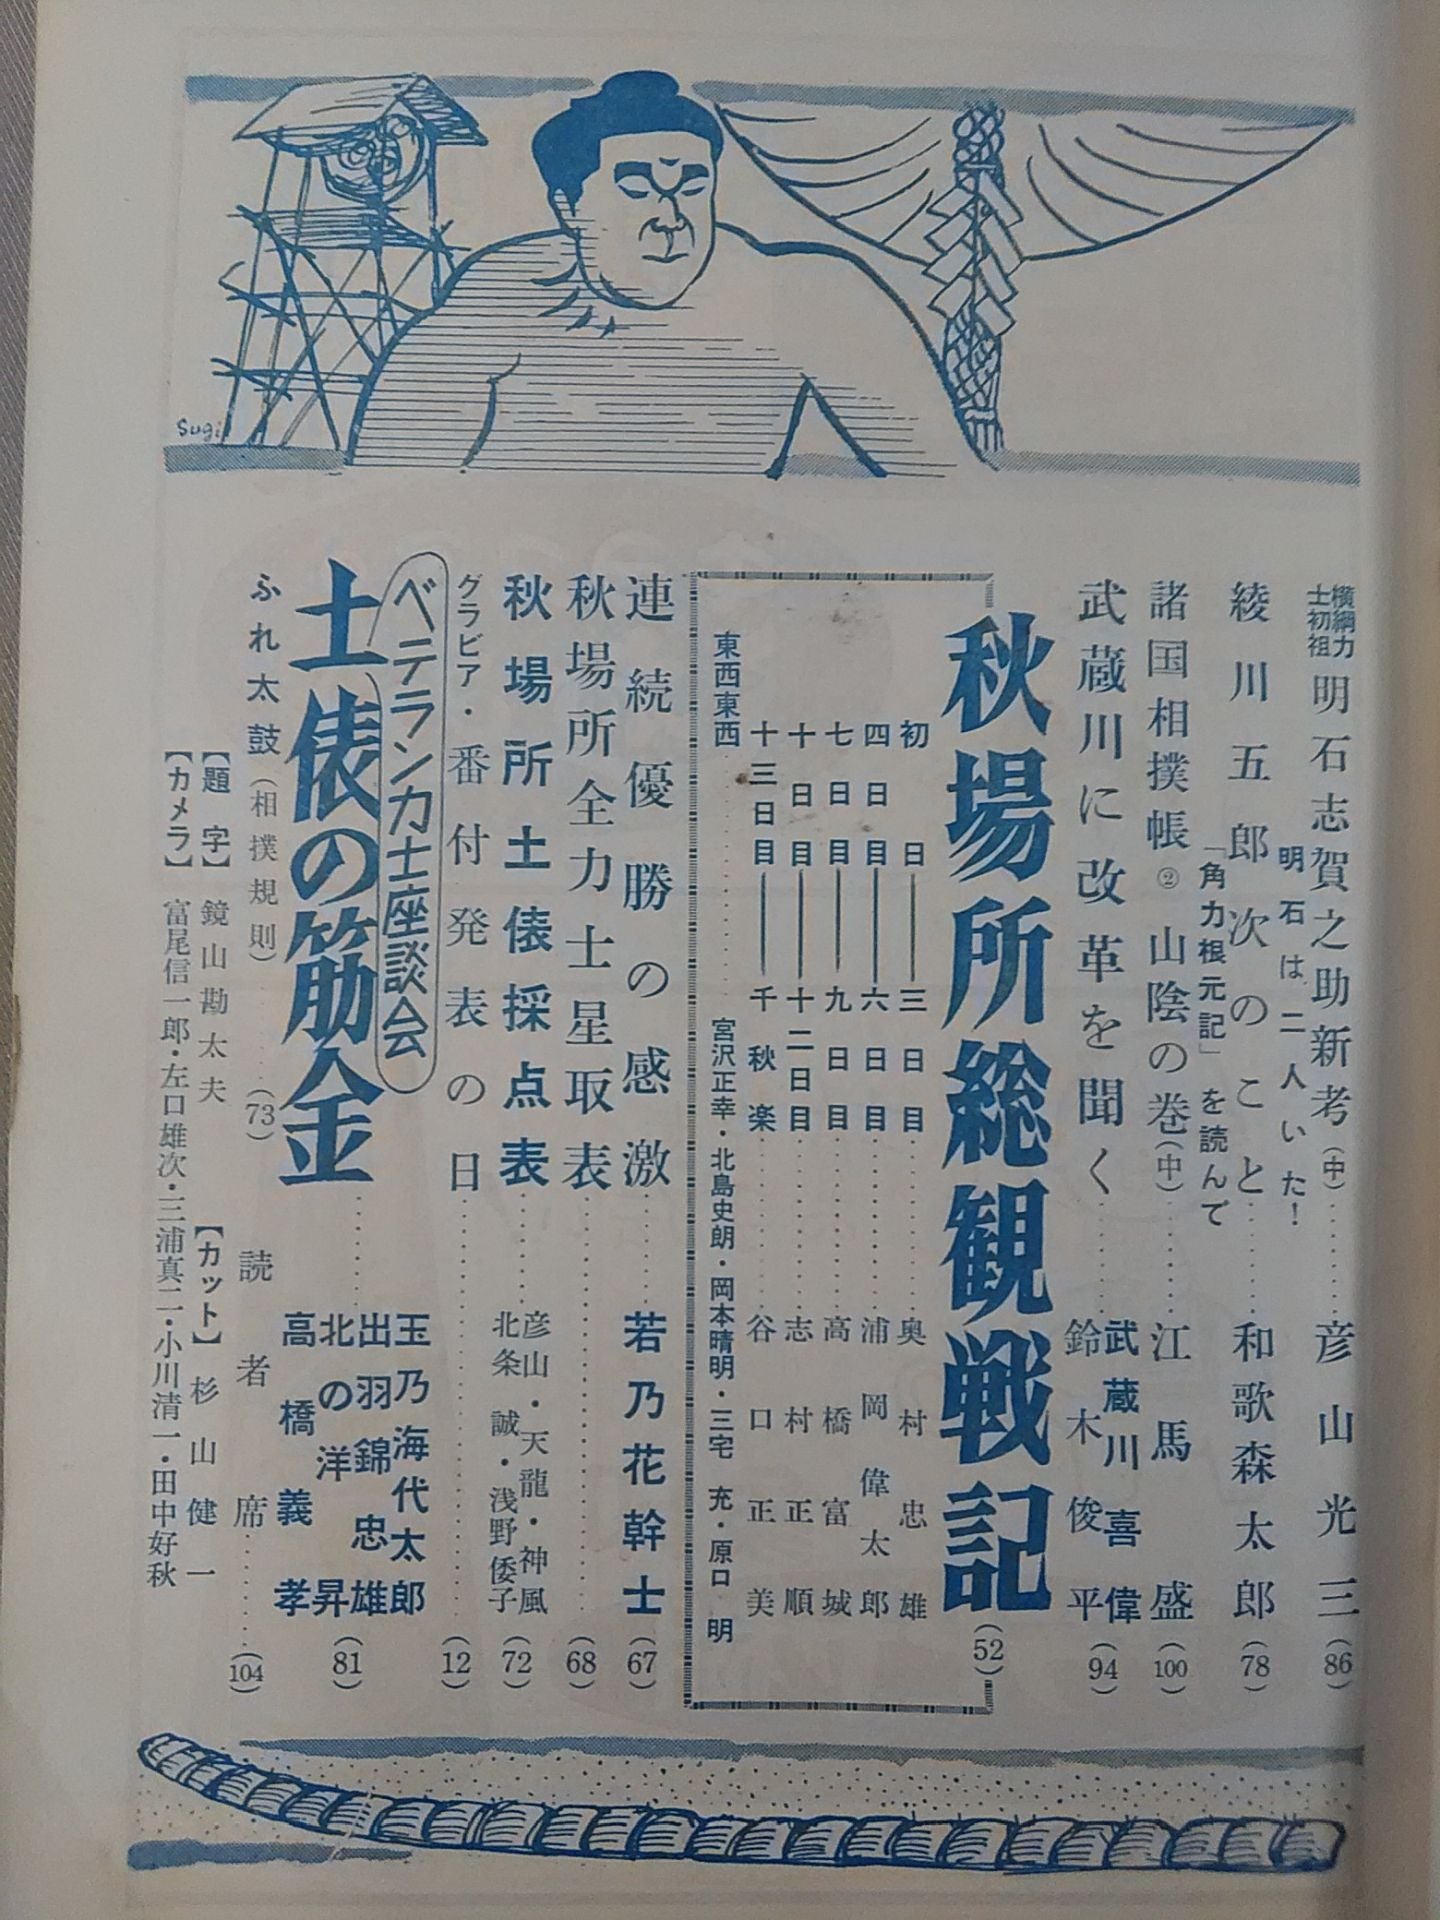 Sugi
横綱力士初祖 明石志賀之助新考(中)…………彦山光三(86)
明石は二人いた!
綾川五郎次のこと…………和歌森太郎(78)
「角力根元記」を読んで
諸国相撲帳② 山陰の巻(中)…………江馬盛(100)
武蔵川に改革を聞く…………武蔵川喜偉
鈴木俊平(94)
秋場所総観戦記(52)
初日―三日目…………奥村忠雄
四日目―六日目…………浦岡偉太郎
七日目―九日目…………高橋富城
十日目―十二日目…………志村正順
十三日目―千秋楽…………谷口正美
東西東西…………宮沢正幸・北島史朗・岡本晴明・三宅充・原口明
連続優勝の感激…………若乃花幹士(67)
秋場所全力士星取表…………(68)
秋場所土俵採点表…………彦山・天龍・神風
北条誠・浅野倭子(72)
グラビア・番付発表の日…………(12)
ベテラン力士座談会
土俵の筋金…………玉乃海代太郎
出羽錦忠雄
北の洋昇
高橋義孝(81)
ふれ太鼓(相撲規則)……(73)
読者席…………(104)
【題字】鏡山勘太夫 【カット】杉山健一
【カメラ】富尾信一郎・左口雄次・三浦真二・小川清一・田中好秋